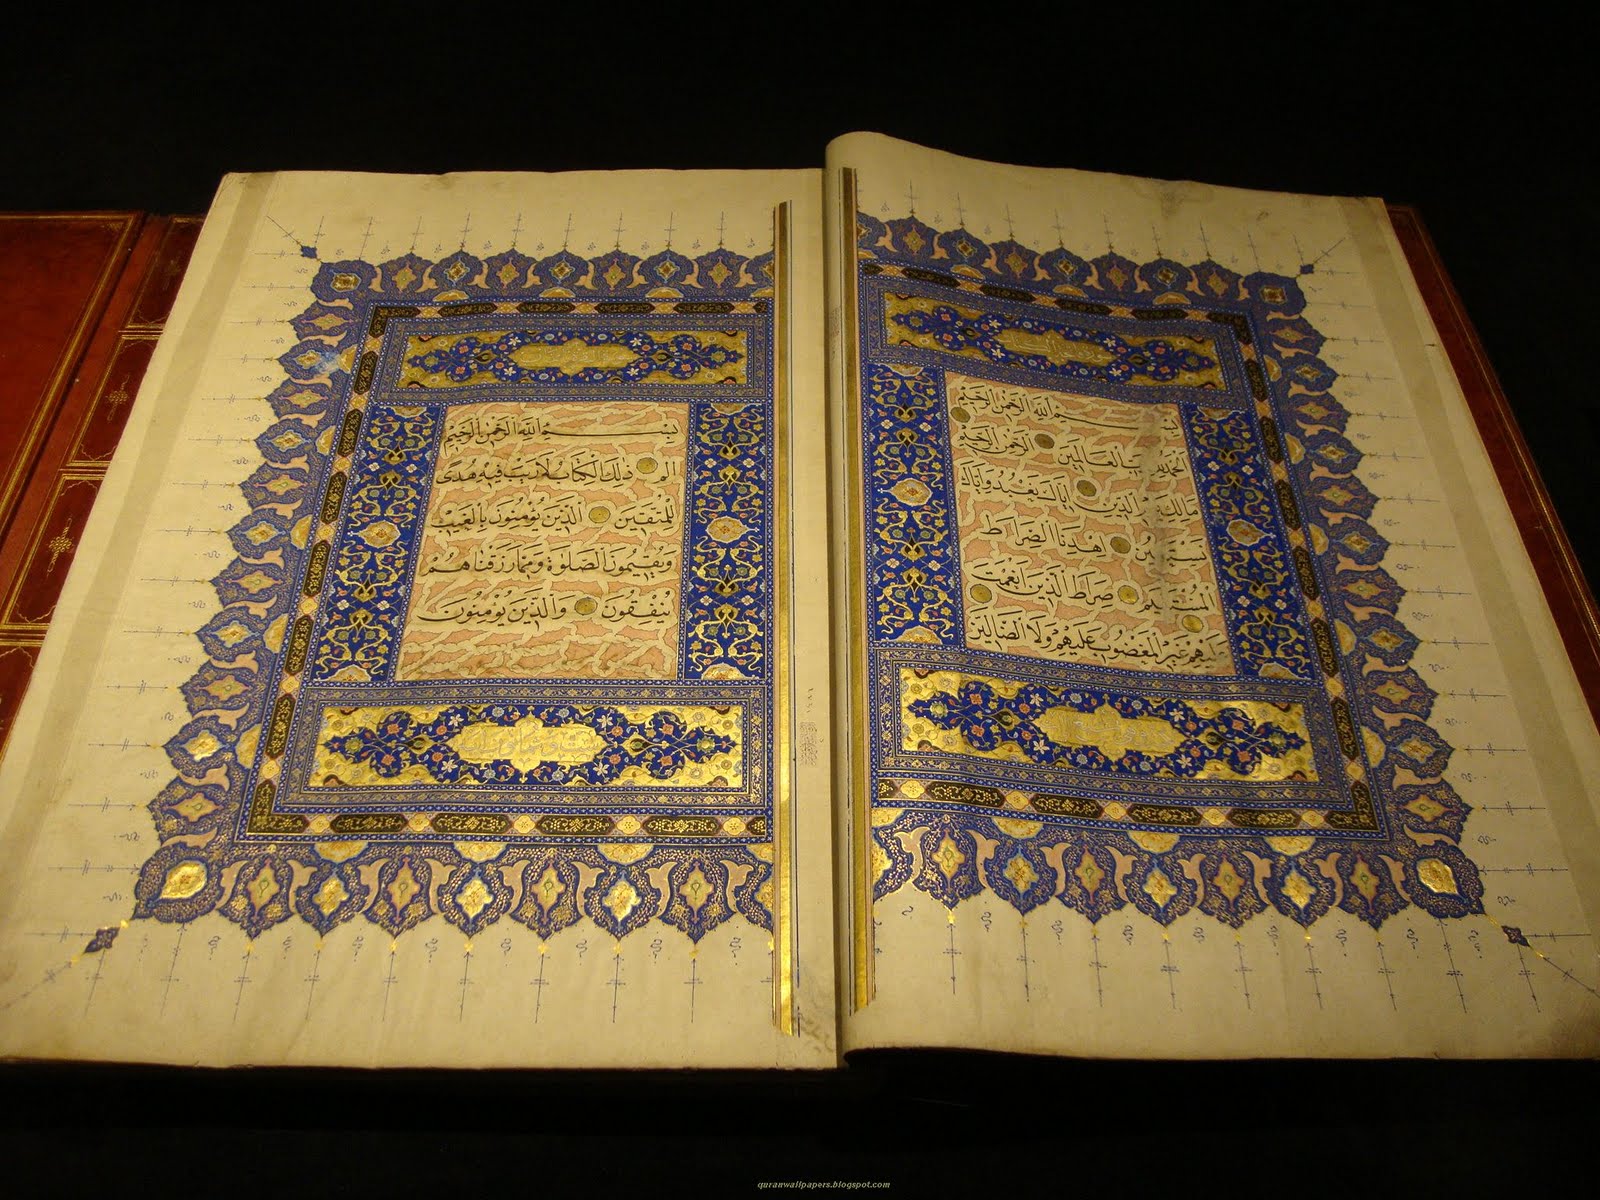 بسم الله الرحمن الرحيم
الحمد لله رب العالمين الرحمن الرحيم
مالك يوم الدين اياك نعبد واياك
نستعين اهدنا الصراط
المستقيم صراط الذين انعمت
عليهم غير المغضوب عليهم ولا الضالين
بسم الله الرحمن الرحيم
الم ذلك الكتاب لا ريب فيه هدى
للمتقين الذين يؤمنون بالغيب
ويقيمون الصلوة ومما رزقناهم
ينفقون والذين يؤمنون
quranwallpapers.blogspot.com